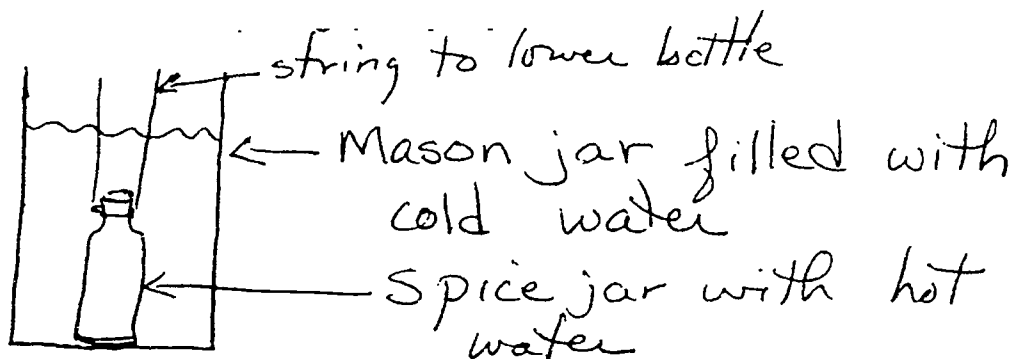 string to lower bottle
Mason jar filled with
cold water
Spice jar with hot
water